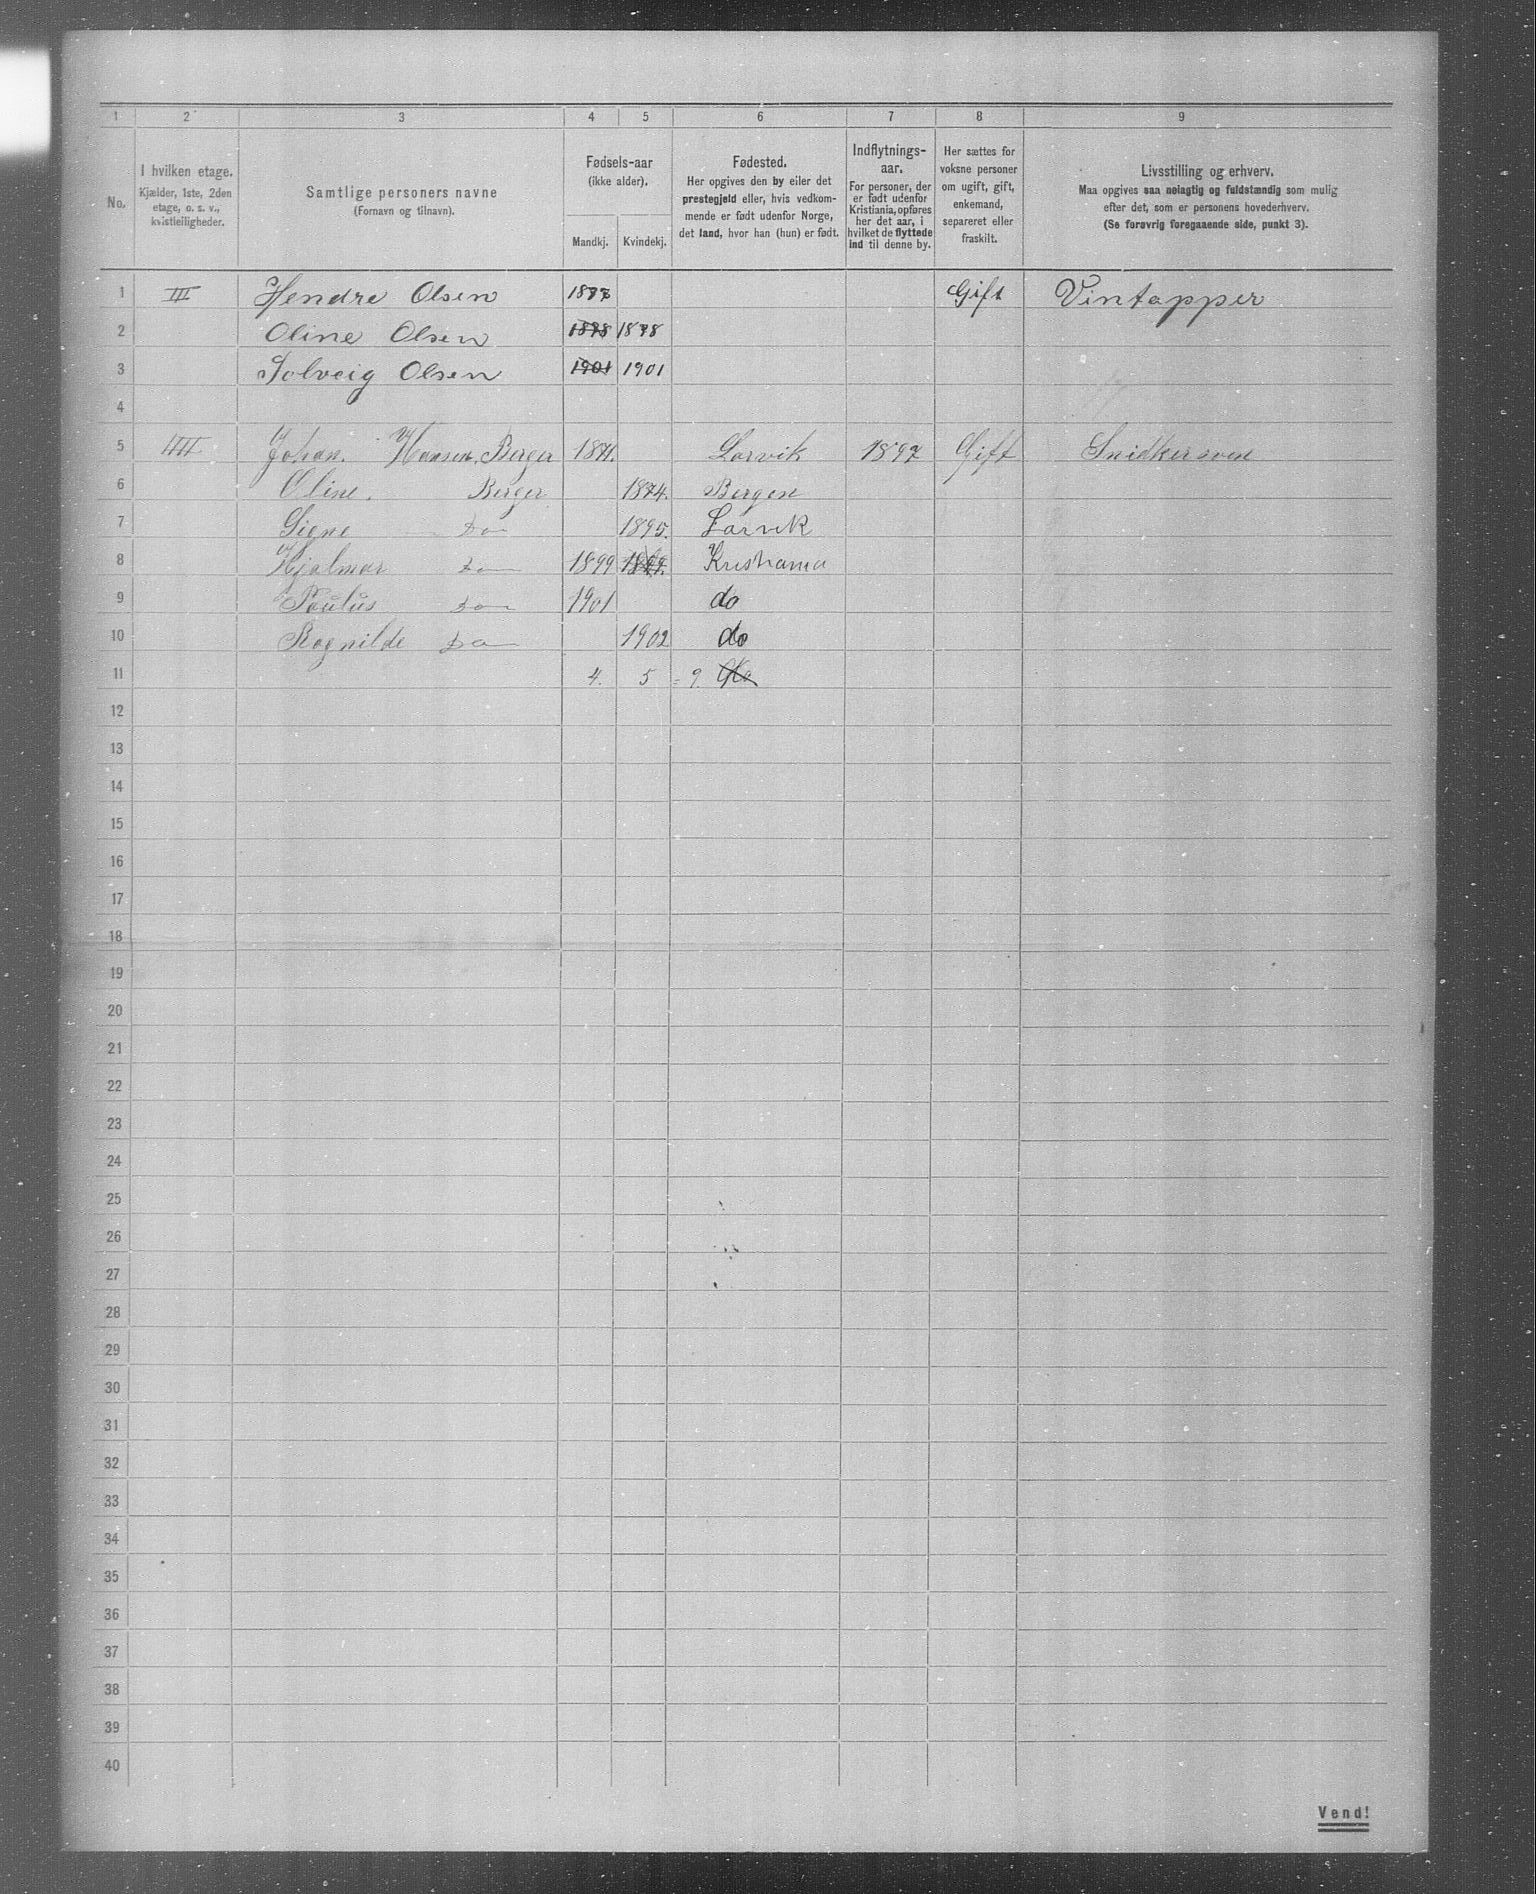 1 2 3 4 5 6 7 8 9
No.
I hvilken etage.
Kjælder, 1ste, 2den
etage, o. s. v.,
kvistleiligheder.
Samtlige personers navne
(Fornavn og tilnavn).
Fødsels-aar
(ikke alder).
Mandkj. Kvindekj.
Fødested.
Her opgives den by eller det
prestegjeld eller, hvis vedkom-
mende er født udenfor Norge,
det land, hvor han (hun) er født.
Indflytnings-
aar.
For personer, der
er født udenfor
Kristiania, opføres
her det aar, i
hvilket de flyttede
ind til denne by.
Her sættes for
voksne personer
om ugift, gift,
enkemand,
separeret eller
fraskilt.
Livsstilling og erhverv.
Maa opgives saa nøiagtig og fuldstændig som mulig
efter det, som er personens hovederhverv.
(Se forøvrig foregaaende side, punkt 3).
1 III Hendre Olsen 1877 Gift Vintapper
2 Oline Olsen 1878 1878
3 Solveig Olsen 1901 1901
4
5 IIII Johan. Hansen. Berger 1871. Larvik 1897 Gift Snidkersven
6 Oline. Berger 1874. Bergen
7 Signe do 1895. Larvik
8 Hjalmar do 1899 1899. Kristiania
9 Paulus do 1901 do
10 Ragnilde do 1902 do
11 4. 5 = 9.
12
13
14
15
16
17
18
19
20
21
22
23
24
25
26
27
28
29
30
31
32
33
34
35
36
37
38
39
40
Vend!